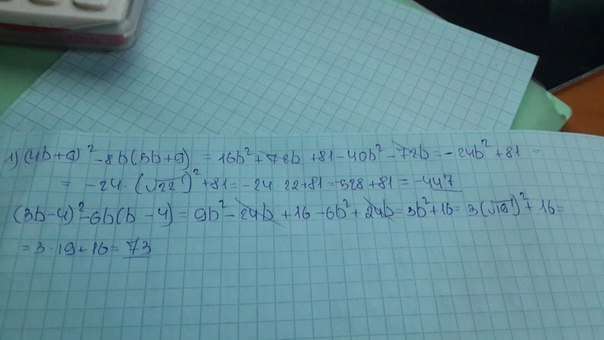 1) (4b+9)² - 8b(5b+9) = 16b² + 72b + 81 - 40b² - 72b = -24b² + 81 =
= -24 · (√22)² + 81 = -24 · 22 + 81 = -528 + 81 = -447
(3b-4)² - 6b(b-4) = 9b² - 24b + 16 - 6b² + 24b = 3b² + 16 = 3(√19)² + 16 =
= 3 · 19 + 16 = 73